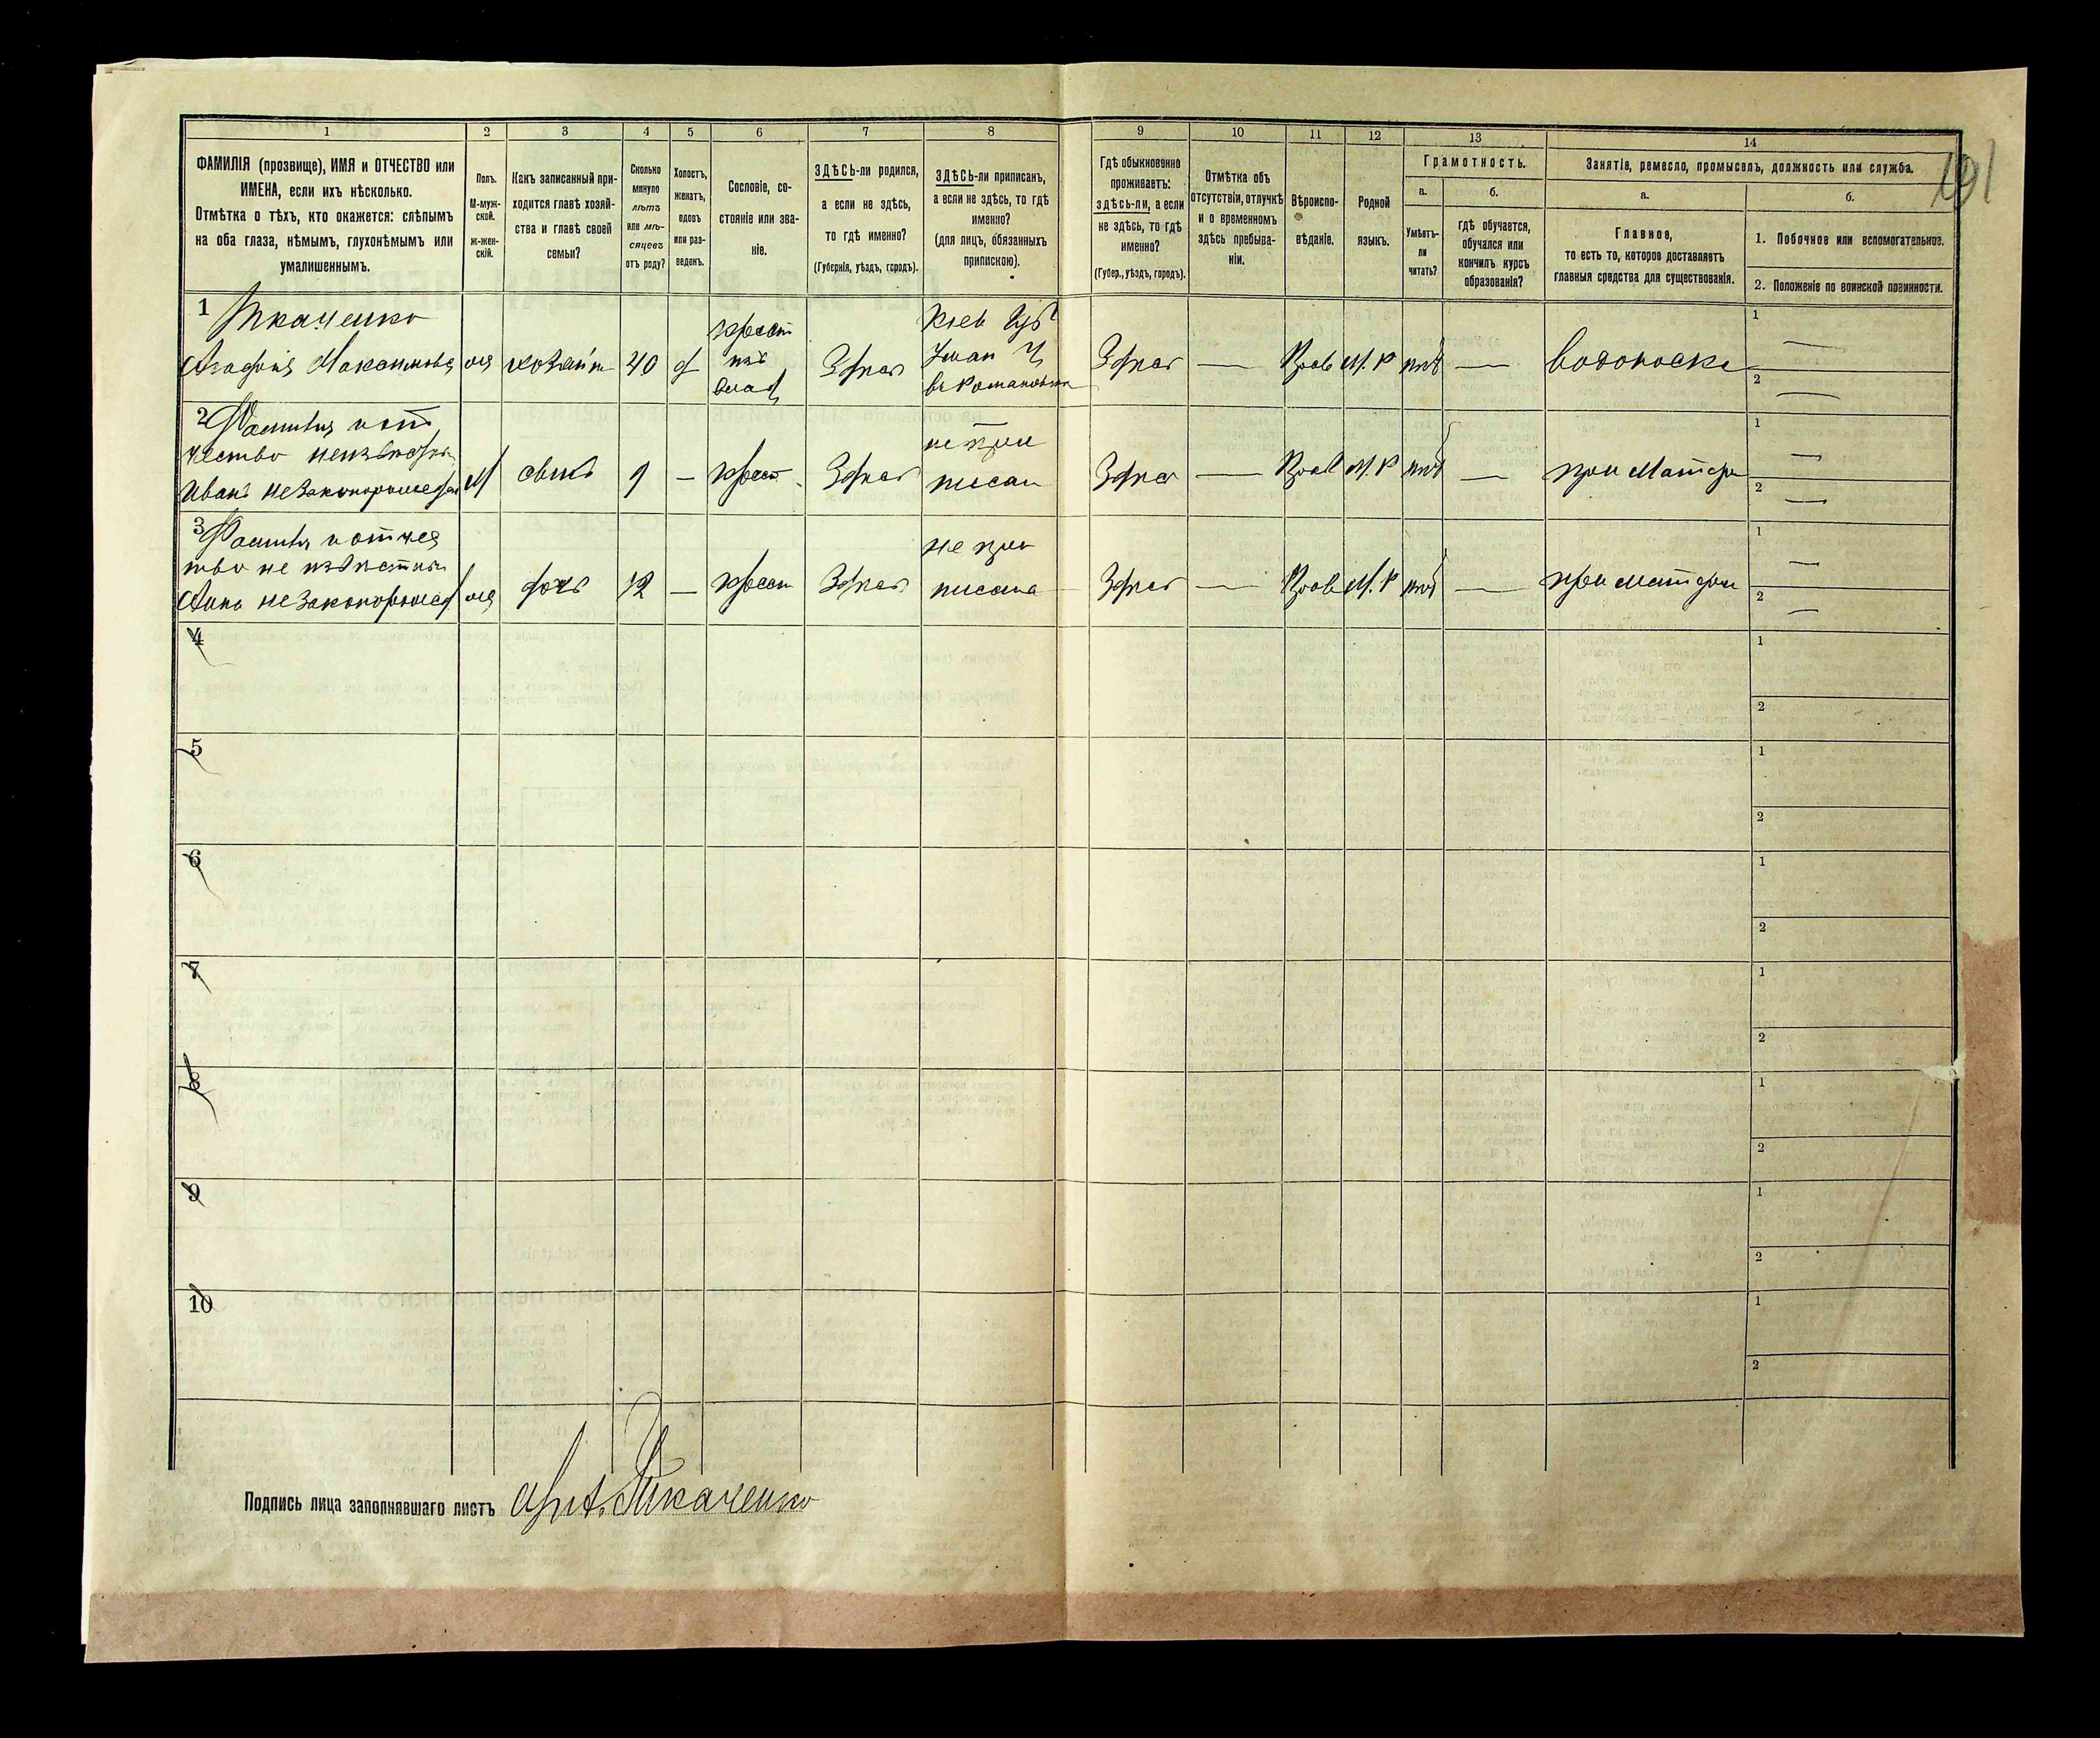 1 2 3 4 5 6 7 8 9 10 11 12 13 14
ФАМИЛІЯ (прозвище), ИМЯ и ОТЧЕСТВО или
ИМЕНА, если ихъ нѣсколько.
Отмѣтка о тѣхъ, кто окажется: слѣпымъ
на оба глаза, нѣмымъ, глухонѣмымъ или
умалишеннымъ.
Полъ.
М-муж-
ской.
Ж-жен-
скій.
Какъ записанный при-
ходится главѣ хозяй-
ства и главѣ своей
семьи?
Сколько
минуло
лѣтъ
или мѣ-
сяцевъ
отъ роду?
Холостъ,
женатъ,
вдовъ
или раз-
веденъ.
Сословіе, со-
стояніе или зва-
ніе.
ЗДѢСЬ-ли родился,
а если не здѣсь,
то гдѣ именно?
(Губернія, уѣздъ, городъ).
ЗДѢСЬ-ли приписанъ,
а если не здѣсь, то гдѣ
именно?
(для лицъ, обязанныхъ
припискою).
Гдѣ обыкновенно
проживаетъ:
здѣсь-ли, а если
не здѣсь, то гдѣ
именно?
(Губер., уѣздъ, городъ).
Отмѣтка объ
отсутствіи, отлучкѣ
и о временномъ
здѣсь пребыва-
ніи.
Вѣроиспо-
вѣданіе.
Родной
языкъ.
Грамотность.
а.
Умѣетъ-
ли
читать?
б.
гдѣ обучается,
обучался или
кончилъ курсъ
образованія?
Занятіе, ремесло, промыселъ, должность или служба.
а.
Главное,
то есть то, которое доставляетъ
главныя средства для существованія.
б.
1. Побочное или вспомогательное.
2. Положеніе по воинской повинности.
191
1 Ткаченко
Агафія Максимова
хозяйк 40 д
крест
изъ
влад
Здѣсь
Кіев Губ
Уман У
Здѣсь — Прав М. Р нѣт — водоноска
1 —
2 —
2 Фамилія и от
чество неизвѣстн
Иванъ незаконорожед
М сынъ 9 — крест Здѣсь
не при
писан
Здѣсь — Прав М. Р нѣт — при Матери
1 —
2 —
3 Фамилія и отчес
тво не извѣстны
Анна незаконорожед
дочь 12 — крест Здѣсь
не при
писана
Здѣсь — Прав М. Р нѣт — при матери
1 —
2 —
4 1
2
5 1
2
6 1
2
7 1
2
8 1
2
9 1
2
10 1
2
Подпись лица заполнявшаго листъ Ткаченко